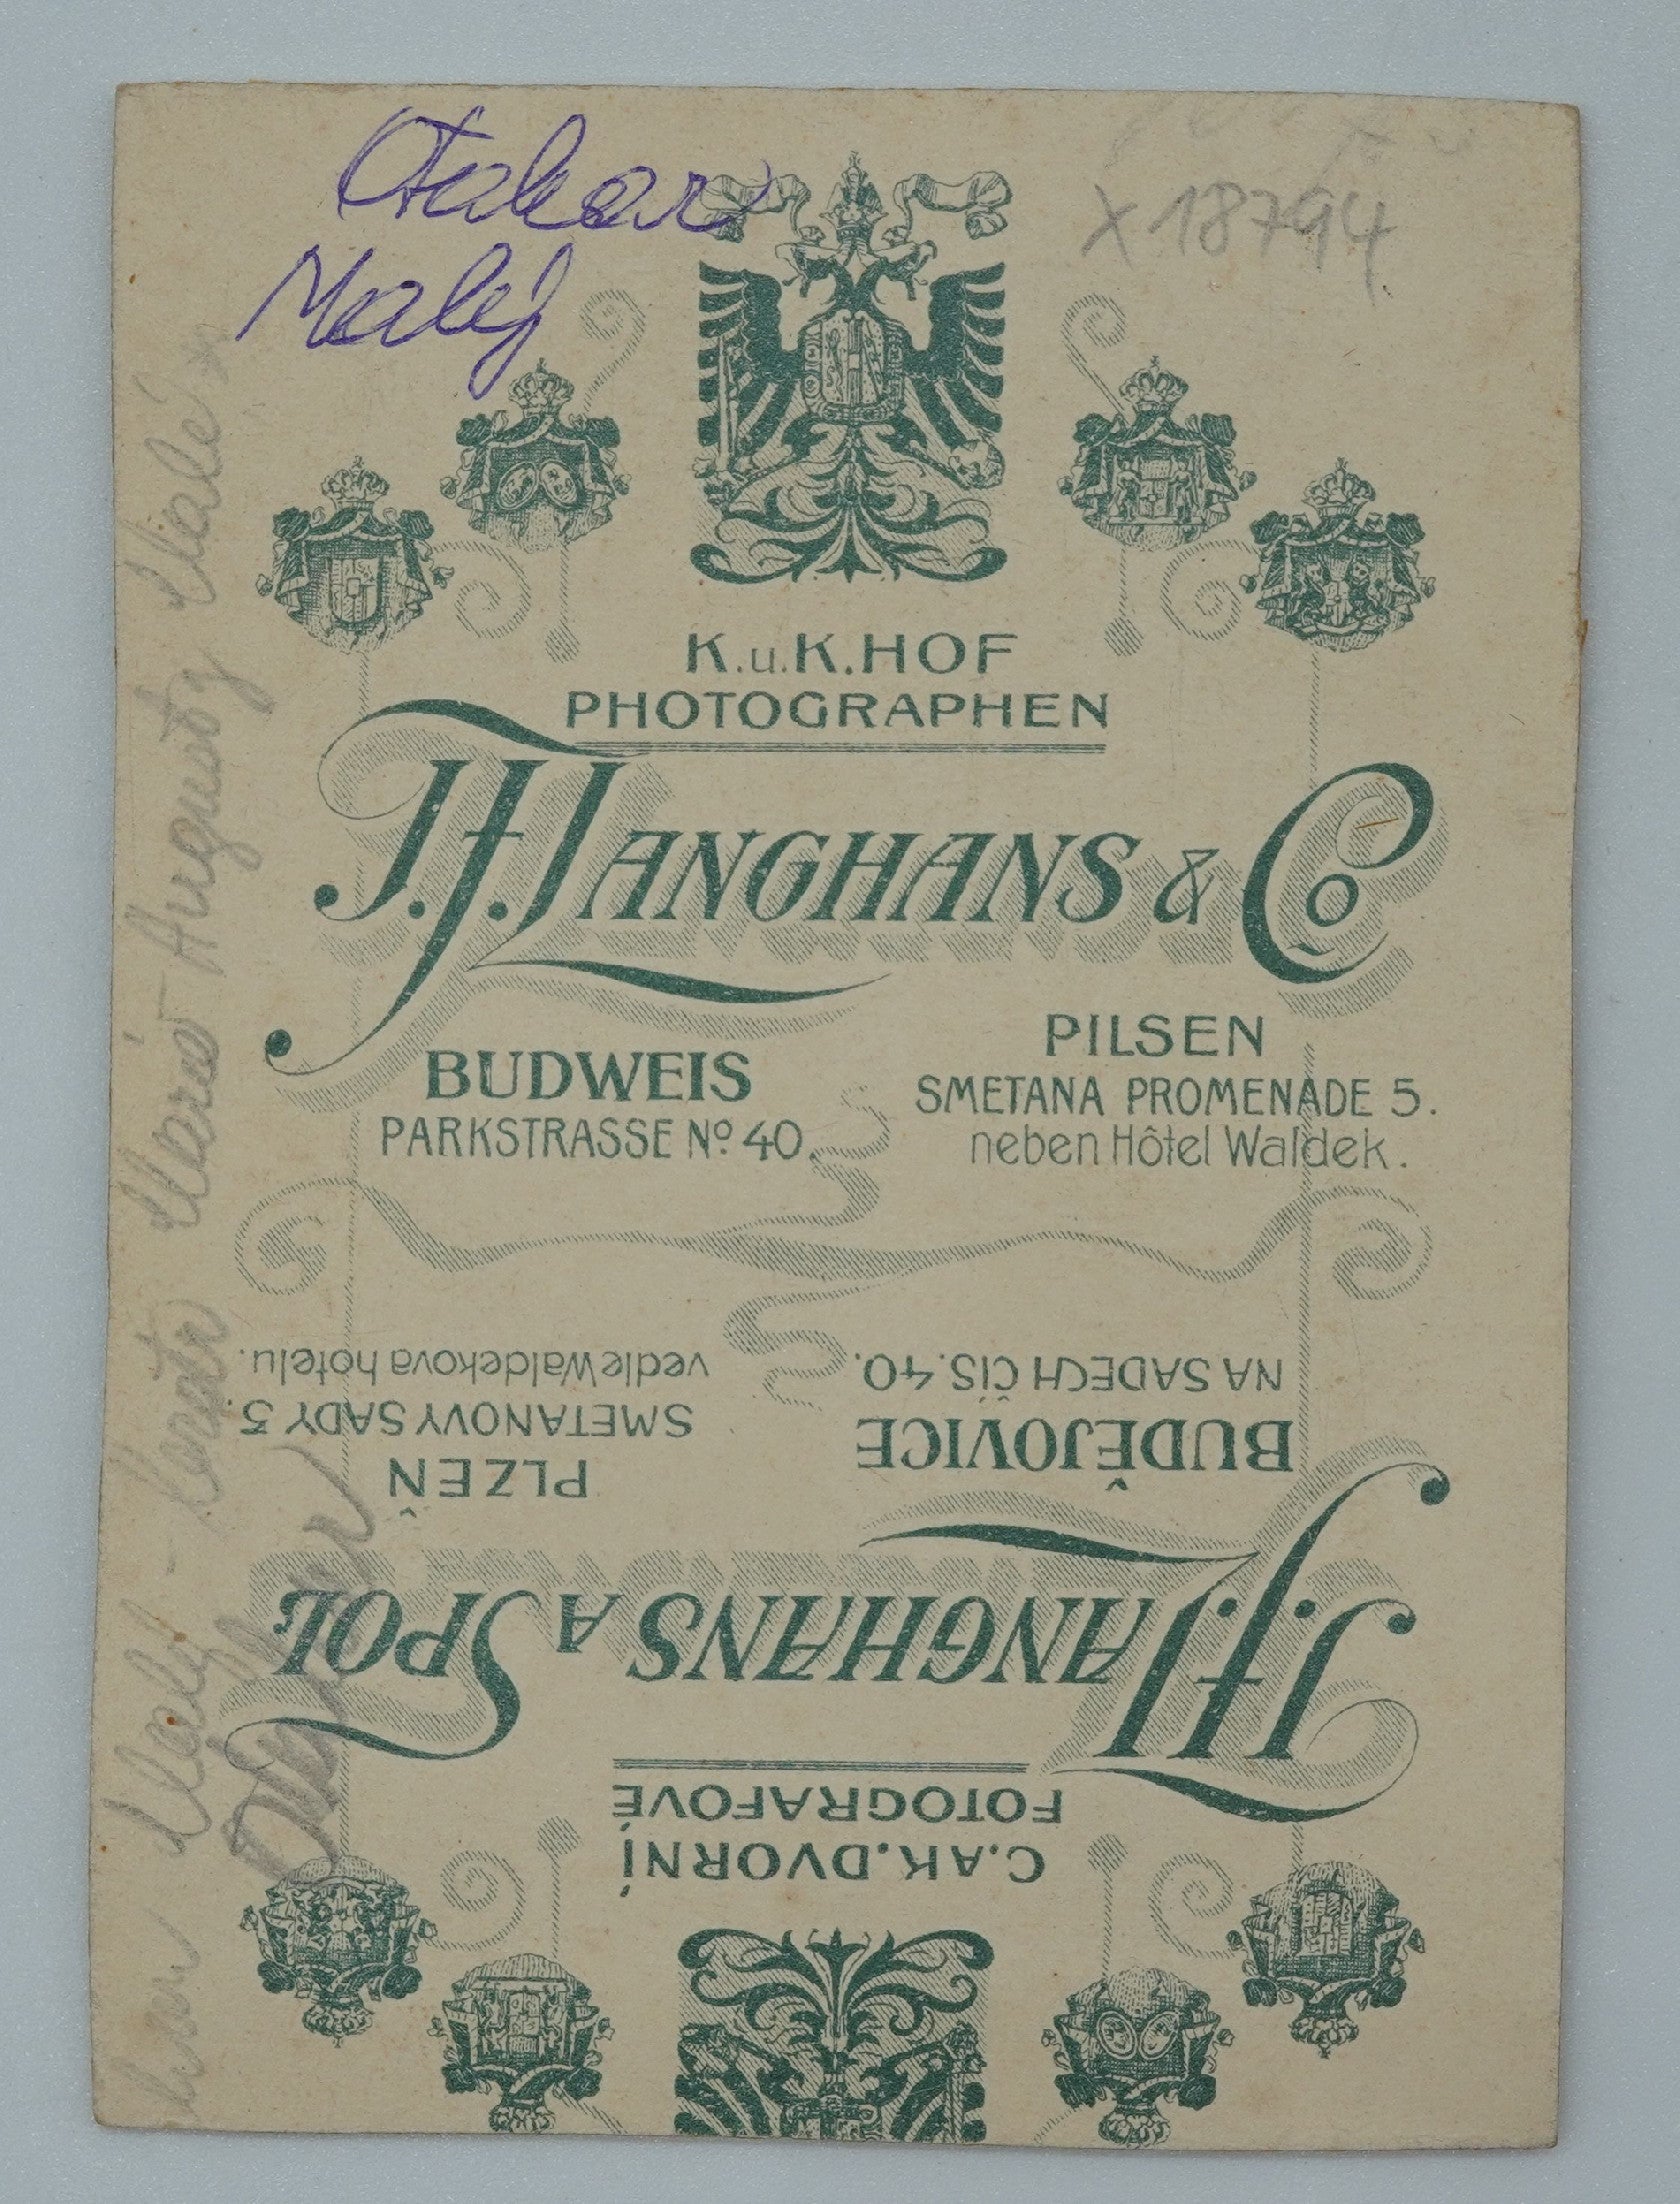 Otakar
Malý
X 18794
K.u.K.HOF
PHOTOGRAPHEN
J.F. LANGHANS & Co
BUDWEIS
PARKSTRASSE No 40.
PILSEN
SMETANA PROMENADE 5.
neben Hôtel Waldek.
C.A K. DVORNÍ
FOTOGRAFOVÉ
J.F. LANGHANS A SPOL.
BUDĚJOVICE
NA SADECH ČÍS. 40.
PLZEŇ
SMETANOVY SADY 5.
vedle Waldekova hotelu.
Malý
Augusty